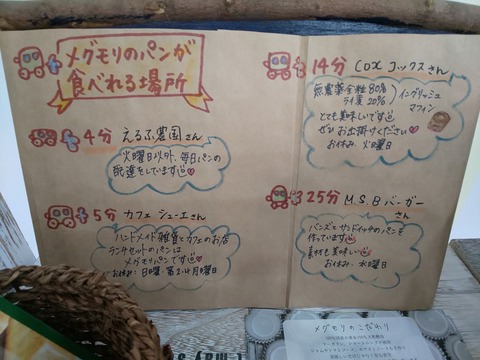 メグモリのパンが
食べれる場所
4分 えるふ農園さん
火曜日以外、毎日パンの
配達をしています
5分 カフェ シューエさん
ハンドメイド雑貨とカフェのお店
ランチセットのパンは
メグモリパンです
お休み:日曜・第2・4月曜日
14分 COX コックスさん
無農薬全粒80% イングリッシュ
ライ麦20% マフィン
とても美味しいです
ぜひお出掛けください
お休み、火曜日
25分 M.S.Bバーガー
さん
バンズとサンドイッチのパンを
作っています
素材も美味しい
お休み:水曜日
メグモリのこだわり